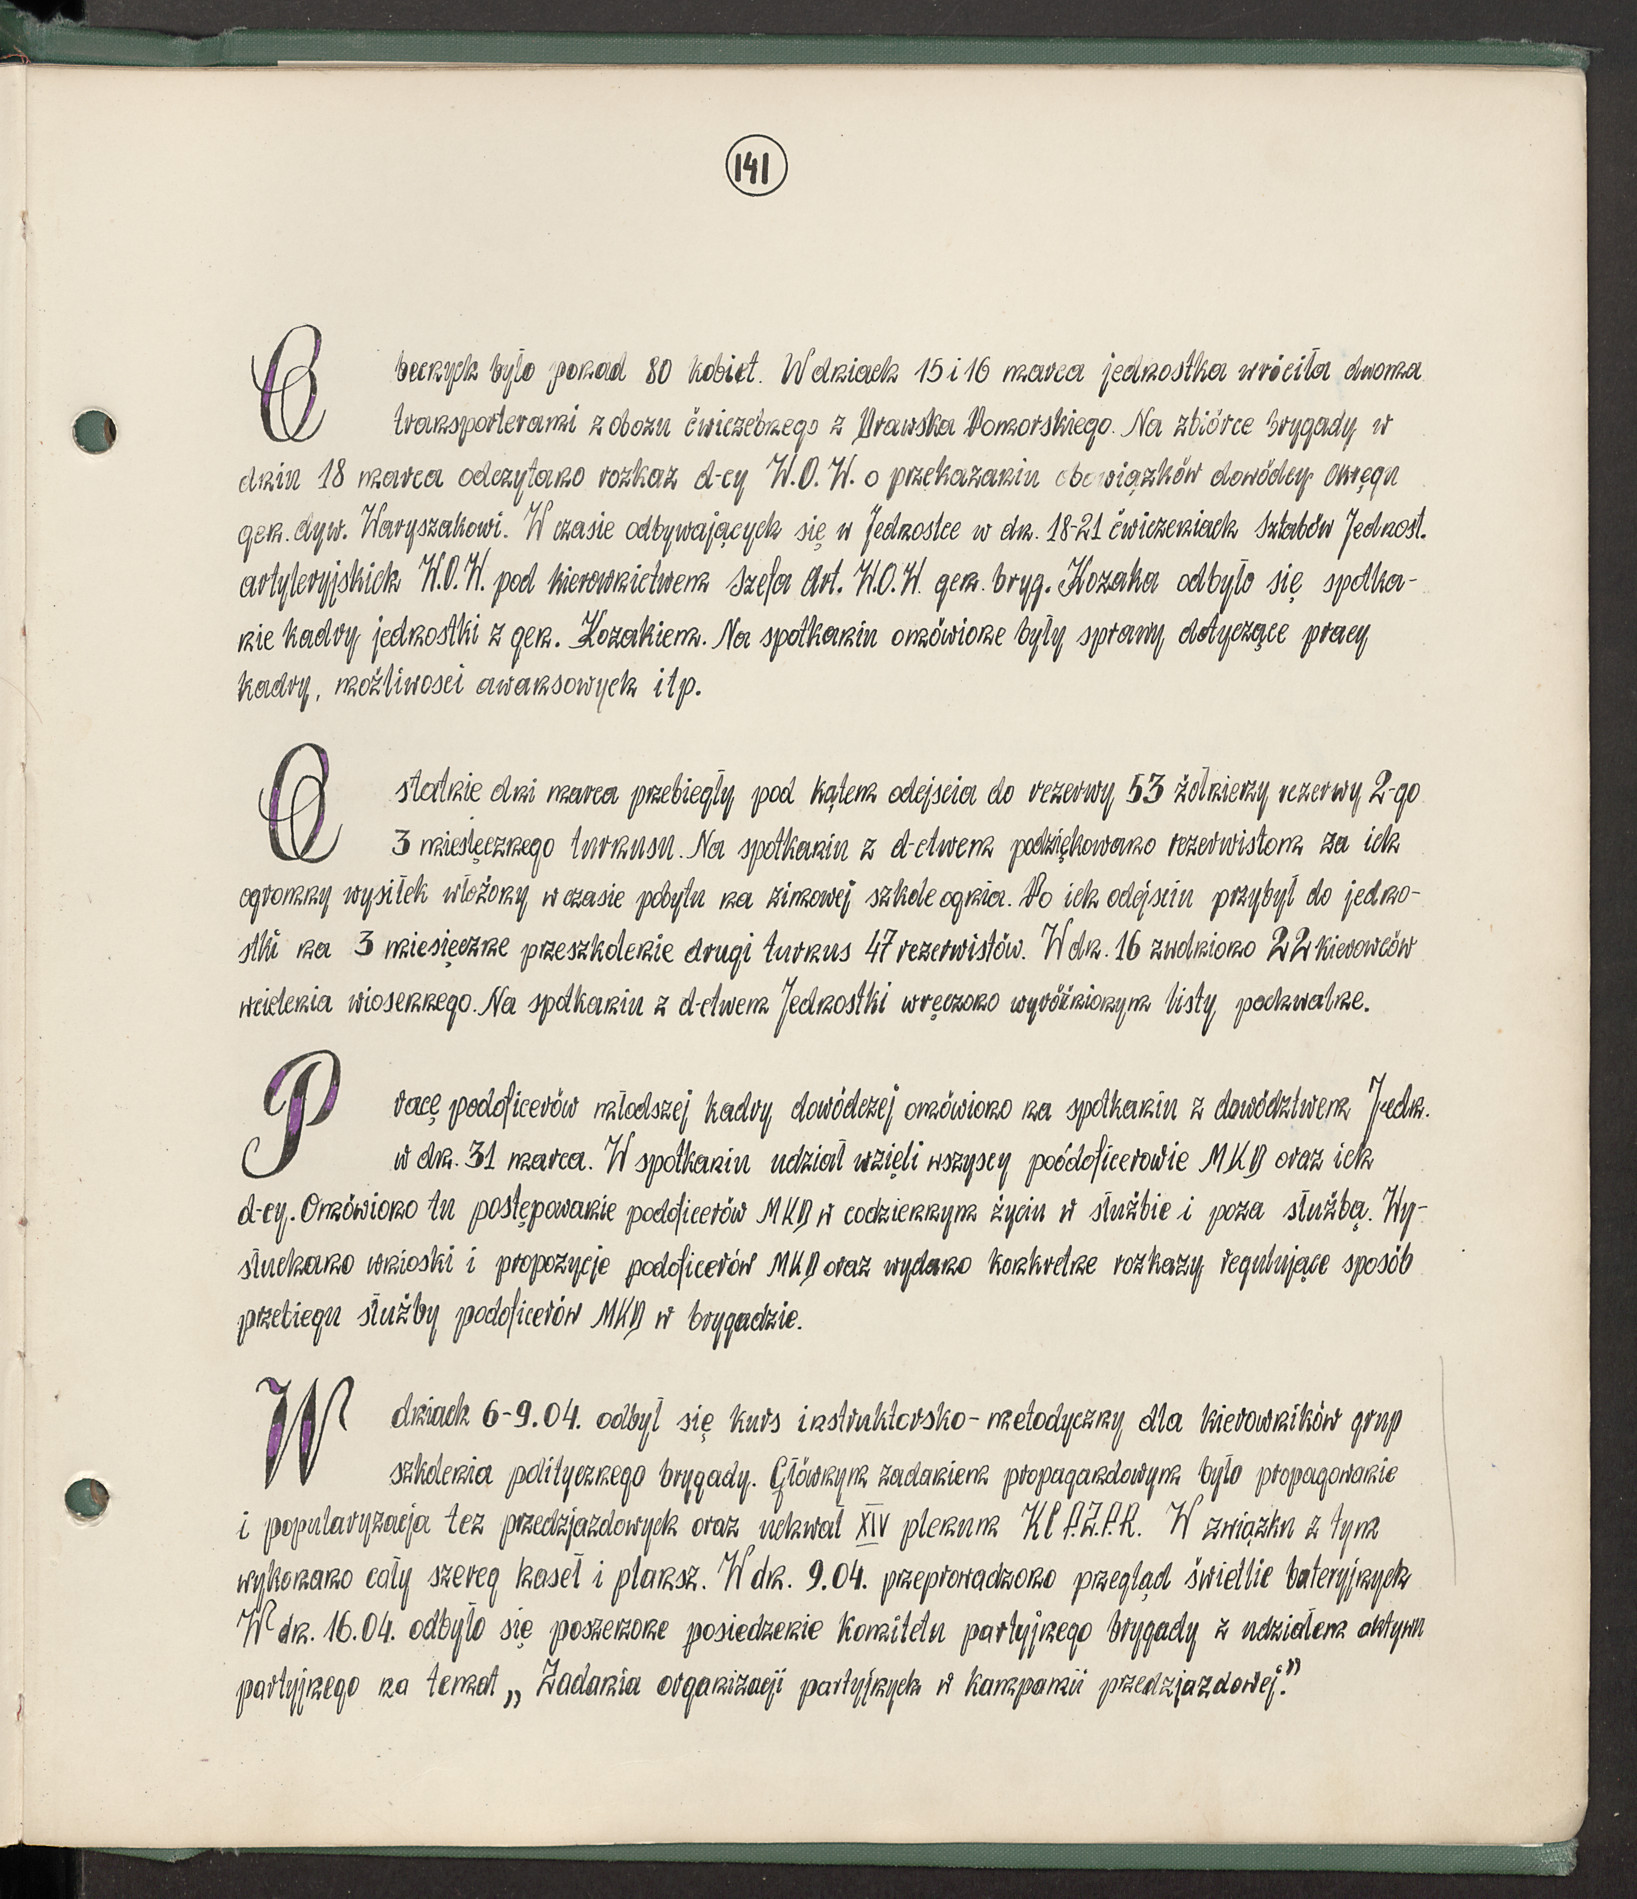 141
Obecnych było ponad 80 kobiet. W dniach 15 i 16 marca jednostka wróciła dwoma
transporterami z obozu ćwiczebnego z Drawska Pomorskiego. Na zbiórce brygady w
dniu 18 marca odczytano rozkaz d-cy W.O.W. o przekazaniu obowiązków dowódcy okręgu
gen. dyw. Waryszakowi. W czasie odbywających się w Jednostce w dn. 18-21 ćwiczeniach Sztabów Jednost.
artyleryjskich W.O.W. pod kierownictwem Szefa Art. W.O.W. gen. bryg. Kozaka odbyło się spotka-
nie kadry jednostki z gen. Kozakiem. Na spotkaniu omówione były sprawy dotyczące pracy
kadry, możliwosci awansowych itp.
Ostatnie dni marca przebiegły pod kątem odejscia do rezerwy 53 żołnierzy rezerwy 2-go
3 miesięcznego turnusu. Na spotkaniu z d-ctwem podziękowano rezerwistom za ich
ogromny wysiłek włożony w czasie pobytu na zimowej szkole ognia. Po ich odejsciu przybył do jedno-
stki na 3 miesięczne przeszkolenie drugi turnus 47 rezerwistów. W dn. 16 zwolniono 22 kierowców
wcielenia wiosennego. Na spotkaniu z d-ctwem Jednostki wręczono wyróżnionym listy pochwalne.
Pracę podoficerów młodszej kadry dowódczej omówiono na spotkaniu z dowództwem Jedn.
w dn. 31 marca. W spotkaniu udział wzięli wszyscy poódoficerowie MKD oraz ich
d-cy. Omówiono tu postępowanie podoficerów MKD w codziennym życiu w służbie i poza służbą. Wy-
słuchano wnioski i propozycje podoficerów MKD oraz wydano konkretne rozkazy regulujące sposób
przebiegu służby podoficerów MKD w brygadzie.
W dniach 6-9.04. odbył się kurs instruktorsko-metodyczny dla kierowników grup
szkolenia politycznego brygady. Głównym zadaniem propagandowym było propagowanie
i popularyzacja tez przedzjazdowych oraz uchwał XIV plenum KC P.Z.P.R. W związku z tym
wykonano cały szereg haseł i plansz. W dn. 9.04. przeprowadzono przegląd świetlic bateryjnych
W dn. 16.04. odbyło się poszerzone posiedzenie komitetu partyjnego brygady z udziałem aktywu
partyjnego na temat „Zadania organizacji partyjnych w kampanii przedzjazdowej."